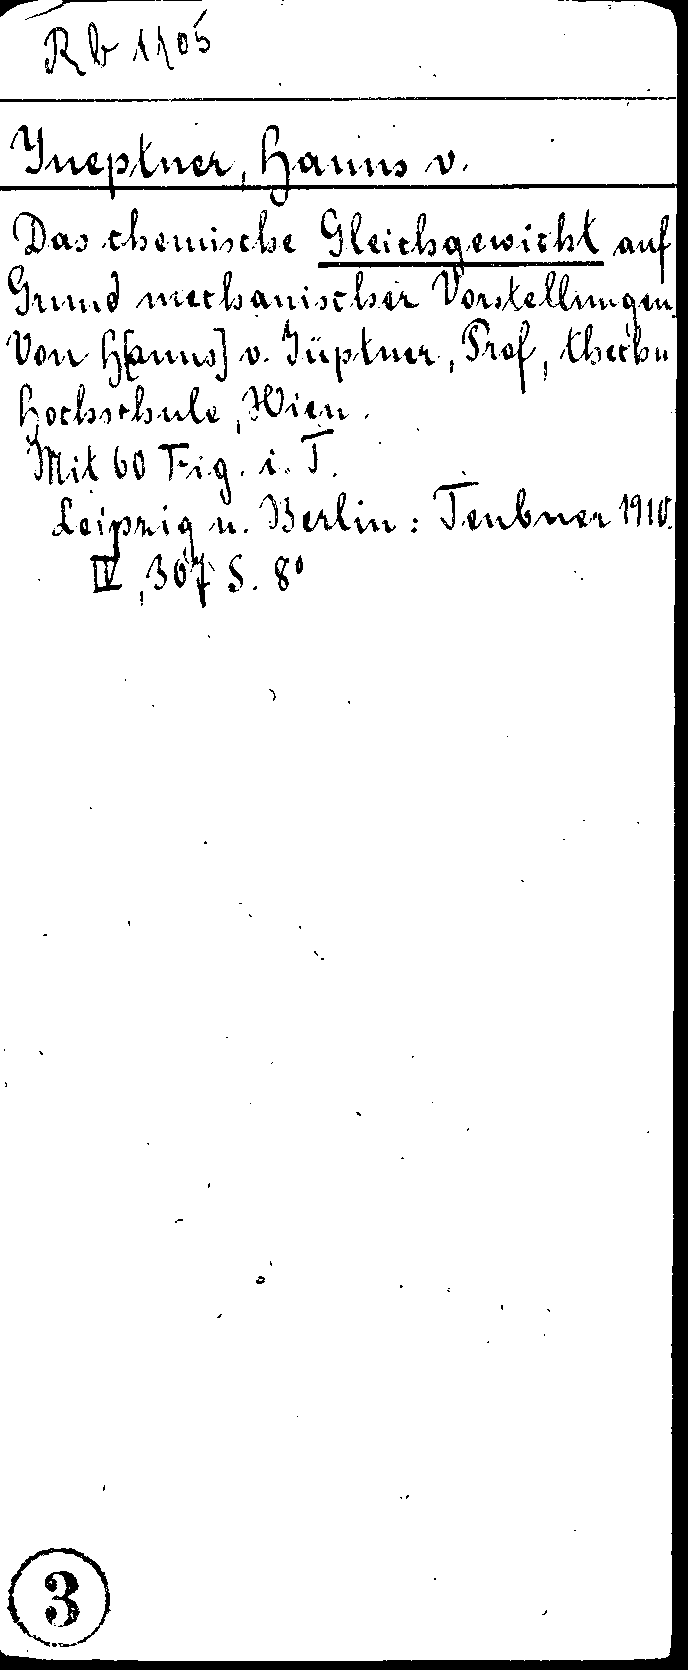 Rb 1105
Jueptner, Hanns v.
Das chemische Gleichgewicht auf
Grund mechanischer Vorstellungen.
Von H[anns] v. Jüptner, Prof, techn
Hochschule, Wien.
Mit 60 Fig. i. T.
Leipzig u. Berlin: Teubner 1910.
IV, 367 S. 8°
3